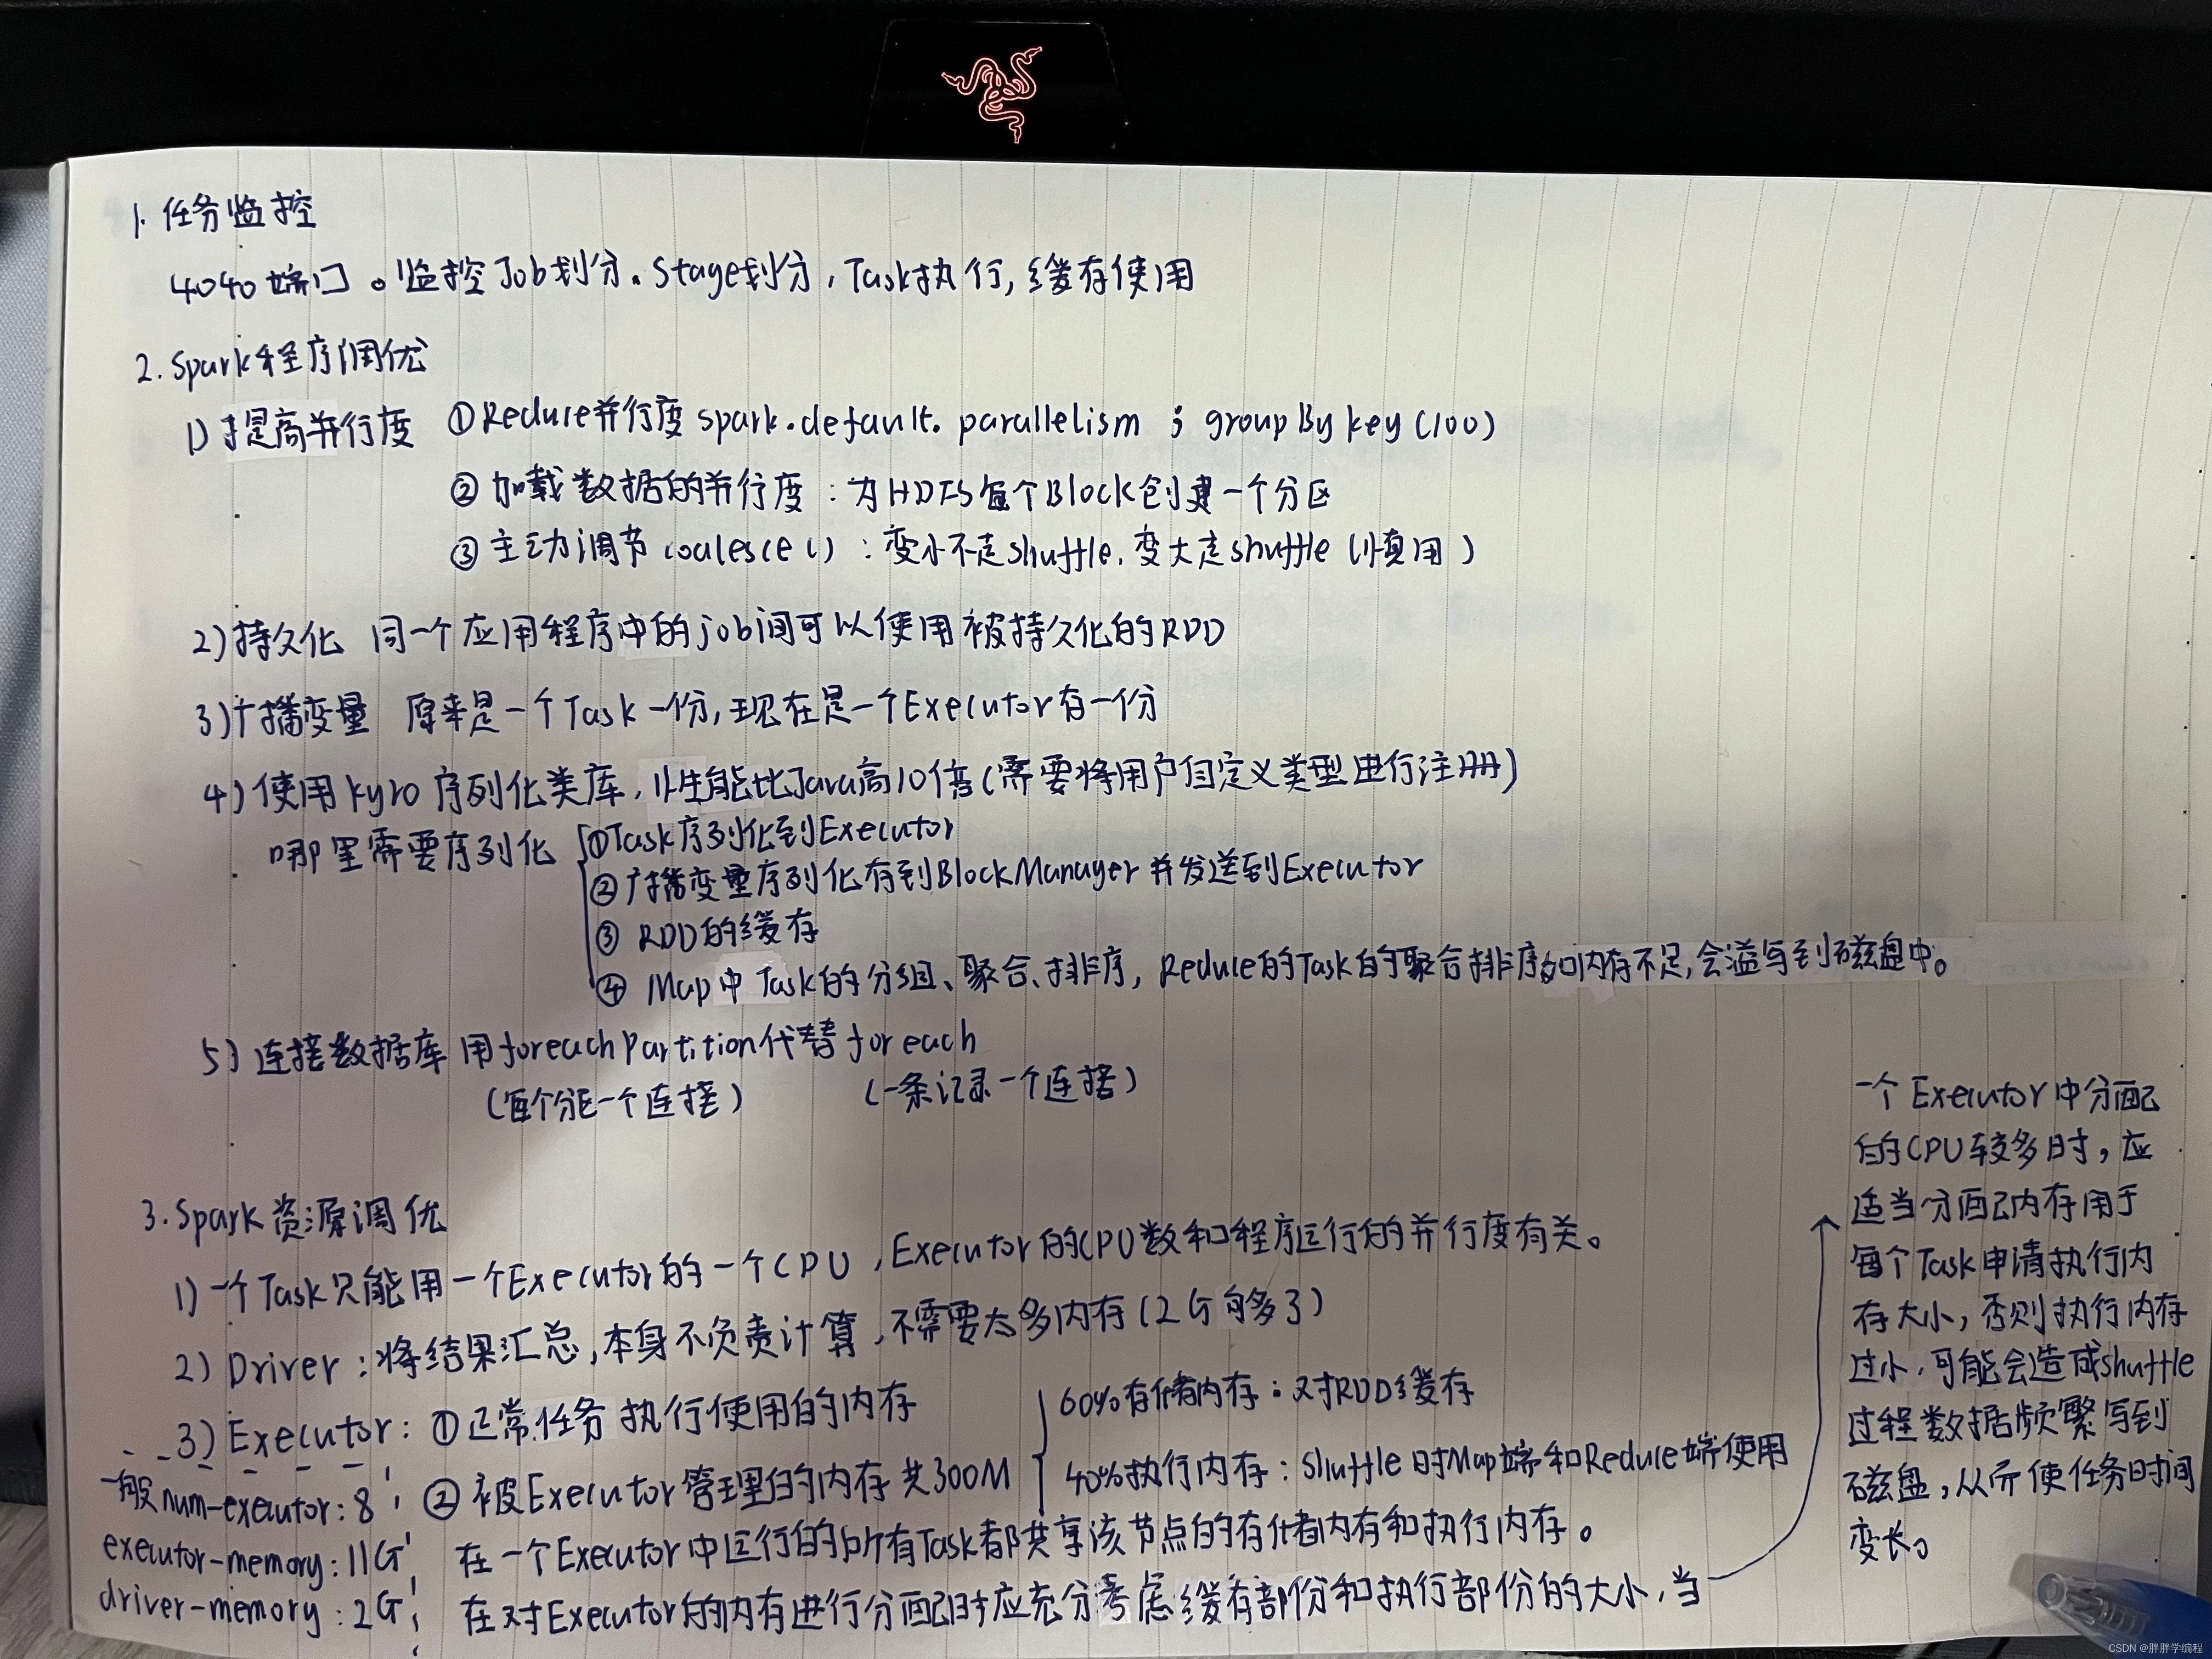 1. 任务监控
4040端口。监控Job划分。Stage划分，Task执行，缓存使用
2. Spark程序调优
1) 提高并行度 ①Reduce并行度 spark.default.parallelism ; groupByKey(100)
② 加载数据的并行度：为HDFS每个Block创建一个分区
③ 主动调节coalesce()：变小不走shuffle，变大走shuffle（慎用）
2) 持久化 同一个应用程序中的job间可以使用被持久化的RDD
3) 广播变量 原来是一个Task一份，现在是一个Executor存一份
4) 使用kyro序列化类库，性能比Java高10倍（需要将用户自定义类型进行注册）
哪里需要序列化 ①Task序列化到Executor
②广播变量序列化存到BlockManager并发送到Executor
③ RDD的缓存
④ Map中Task的分组、聚合、排序，Reduce的Task的聚合排序如内存不足，会溢写到磁盘中。
5) 连接数据库 用foreachPartition代替foreach
（每个分区一个连接） （一条记录一个连接）
3. Spark资源调优
1) 一个Task只能用一个Executor的一个CPU，Executor的CPU数和程序运行的并行度有关。
2) Driver：将结果汇总，本身不负责计算，不需要太多内存（2G够多了）
3) Executor：①正常任务执行使用的内存
② 被Executor管理的内存 共300M
60%存储内存：对RDD缓存
40%执行内存：Shuffle时Map端和Reduce端使用
在一个Executor中运行的所有Task都共享该节点的存储内存和执行内存。
在对Executor的内存进行分配时应充分考虑缓存部份和执行部份的大小，当
一个Executor中分配
的CPU较多时，应
适当分配内存用于
每个Task申请执行内
存大小，否则执行内存
过小，可能会造成shuffle
过程数据频繁写到
磁盘，从而使任务时间
变长。
一般num-executor:8
executor-memory:11G
driver-memory:2G
CSDN @胖胖学编程